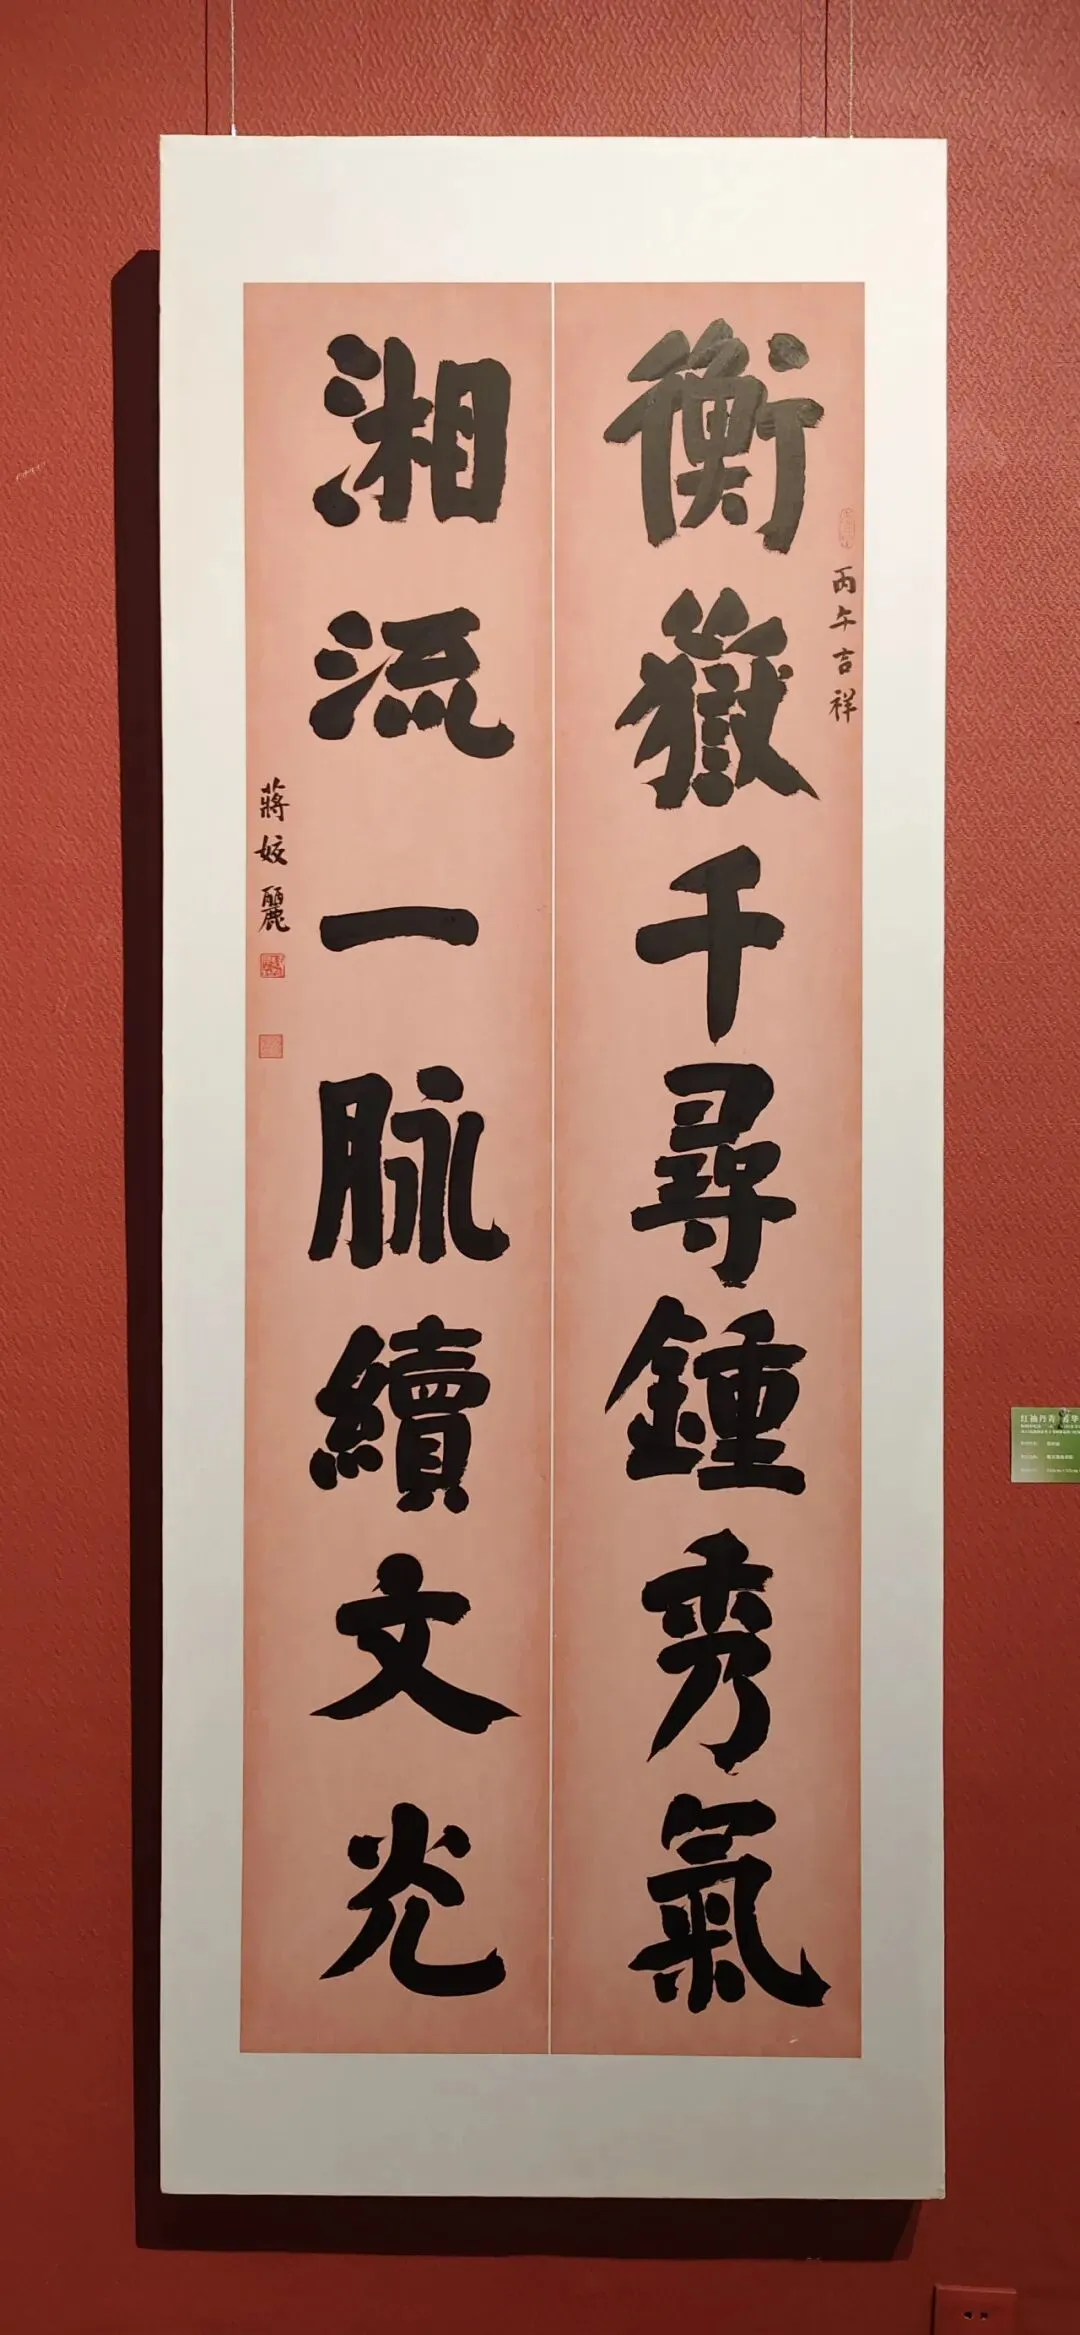 衡嶽千尋鍾秀氣
丙午吉祥
湘流一脉續文光
蔣姣麗
红袖丹青